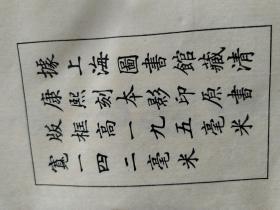 據上海圖書館藏清
康熙刻本影印原書
版框高一九五毫米
寬一四二毫米